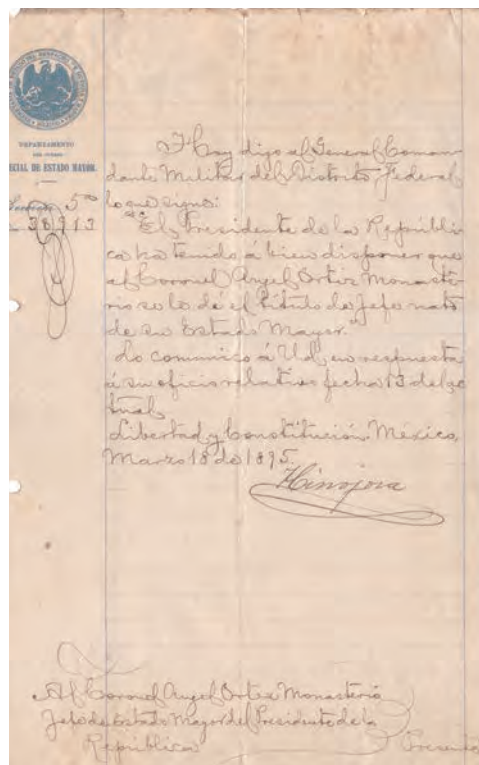 DEPARTAMENTO
DEL CUERPO
ECIAL DE ESTADO MAYOR.
Sección 5ª
38913
Hoy digo al General Coman
dante Militar del Distrito Federal
lo que sigue:
"El Presidente de la Repúbli
ca ha tenido á bien disponer que
al Coronel Angel Ortiz Monaste
rio se le dé el título de Jefe nato
de su Estado Mayor."
Lo comunico á Ud. en respuesta
á su oficio relativo fecha 13 del ac
tual.
Libertad y Constitución. México,
Marzo 18 de 1895.
Hinojosa
Al Coronel Angel Ortiz Monasterio
Jefe de Estado Mayor del Presidente de la
República
Presente